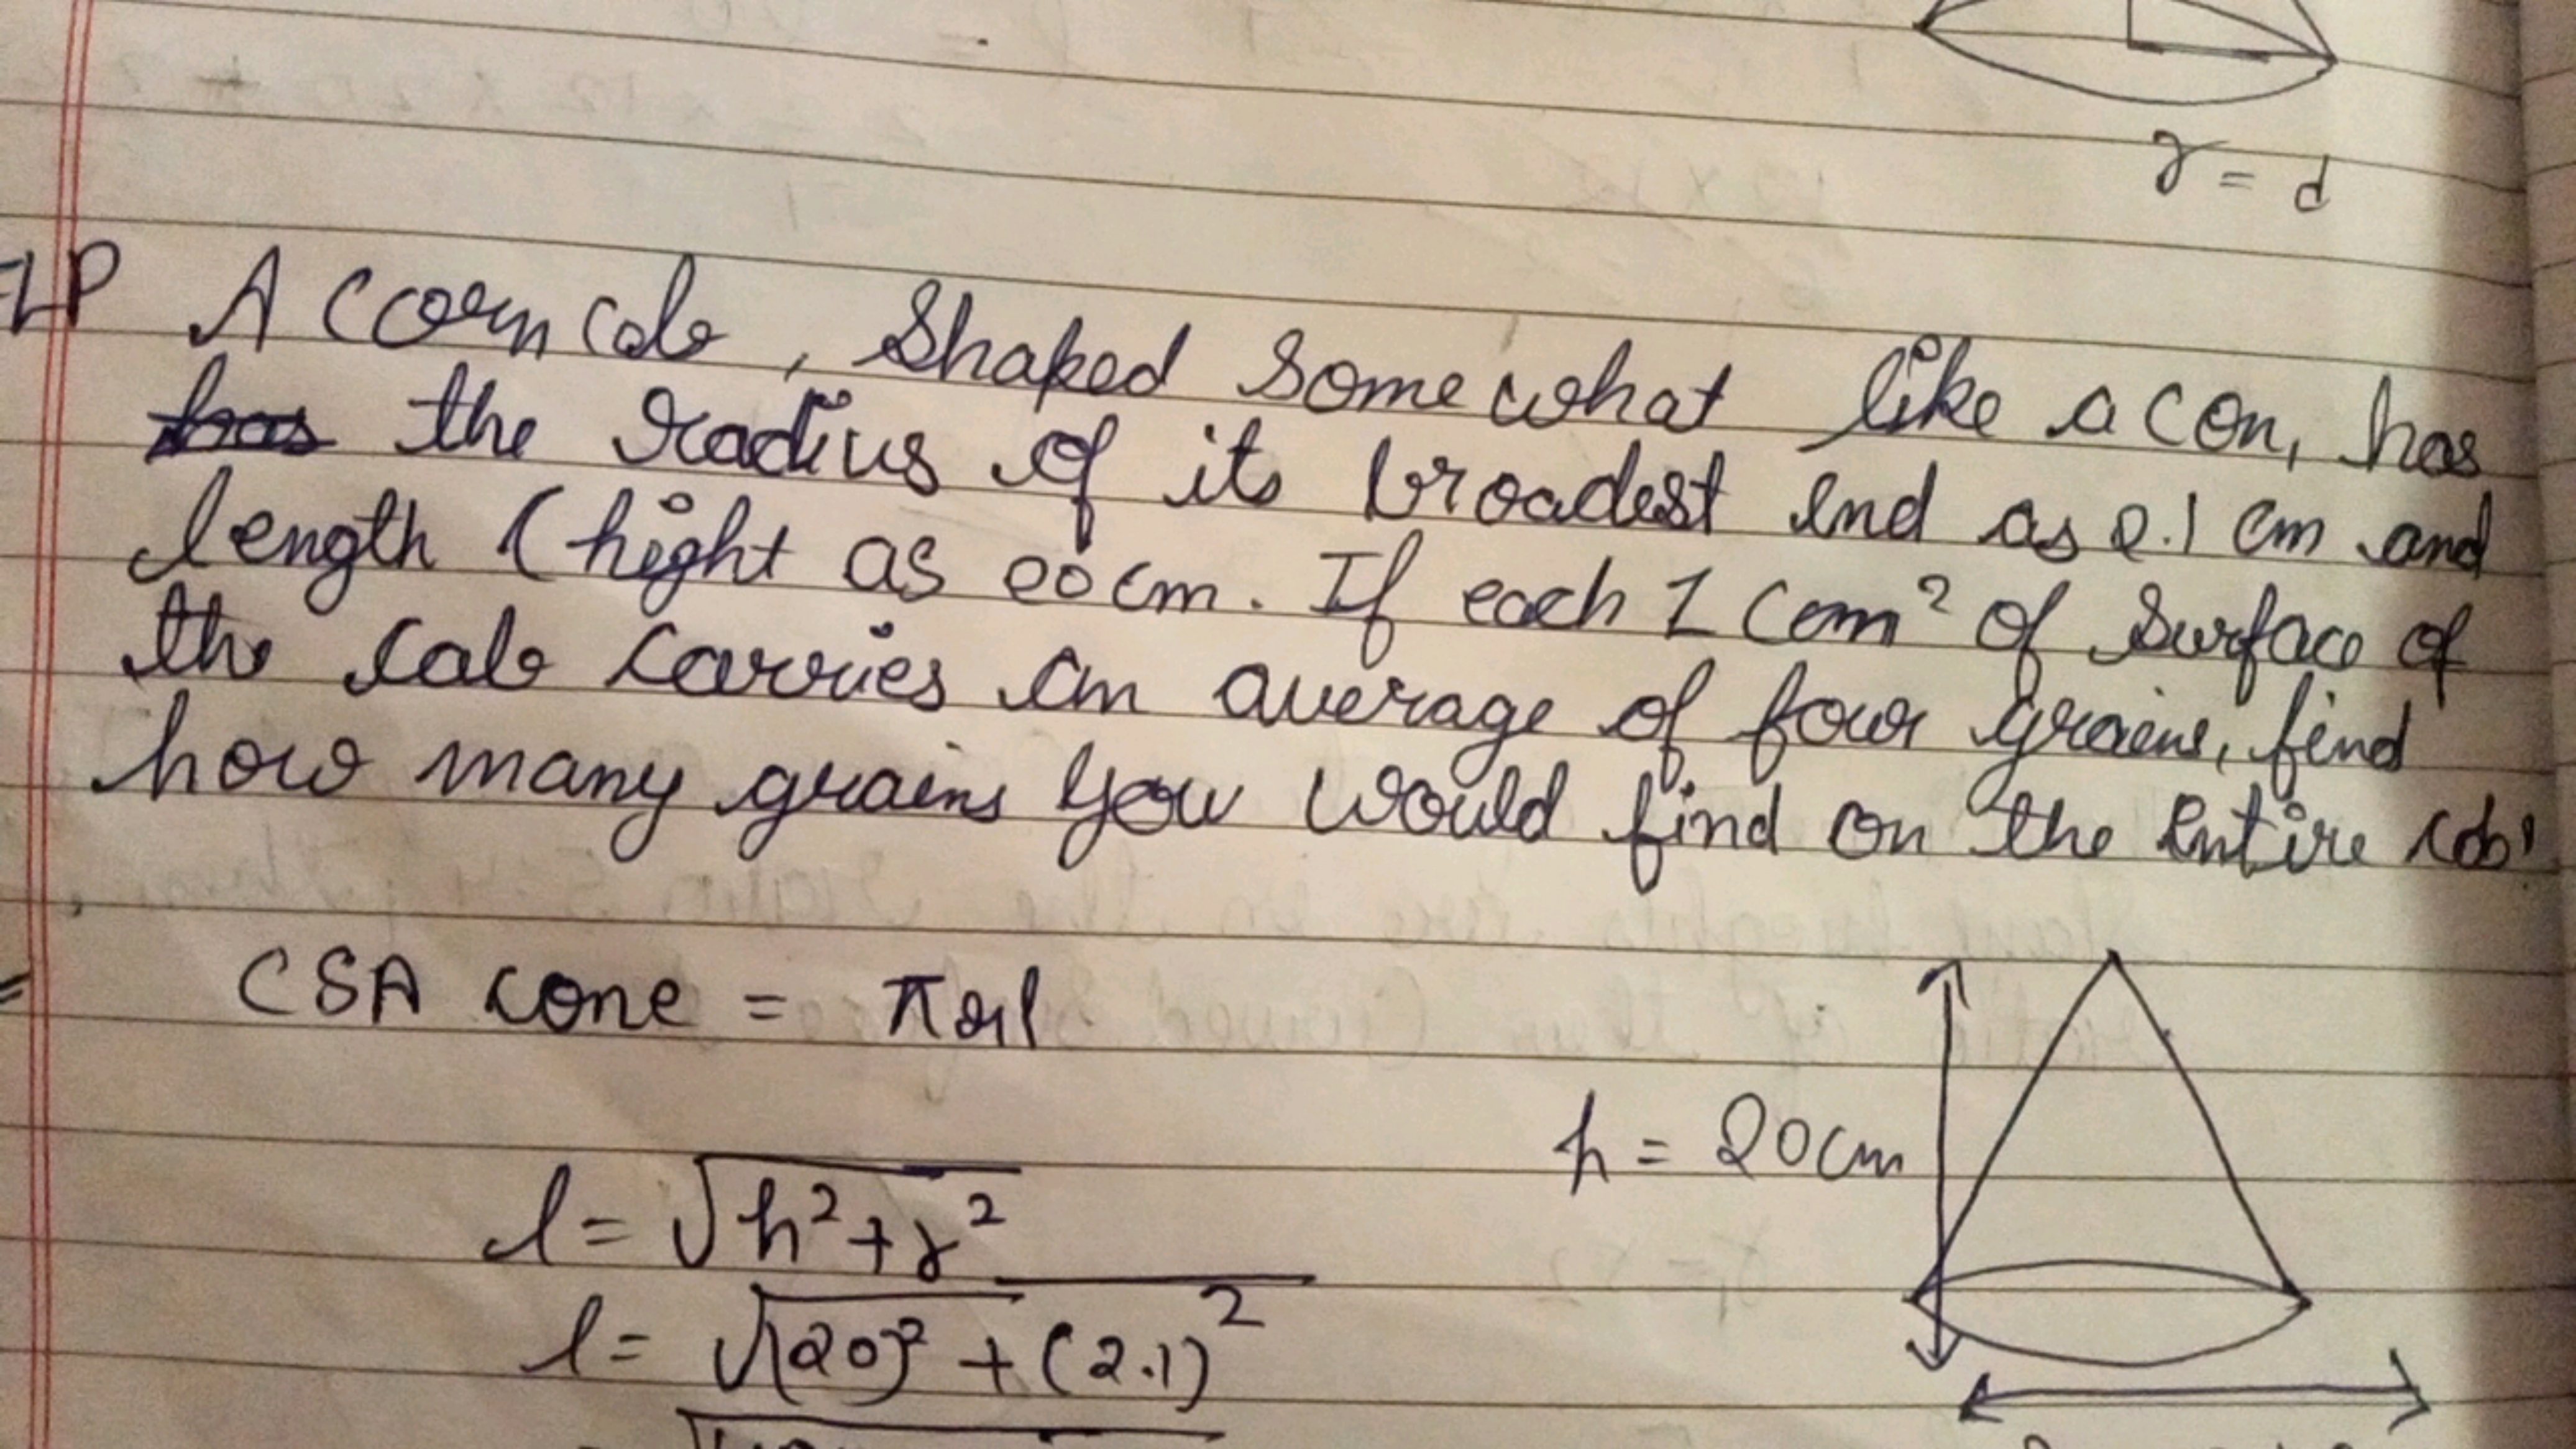 r = d
A corn cob, Shaped Some what like a con, has
the radius of its broadest end as 2.1 cm and
length (hight as 20 cm. If each 1 cm² of Surface of
the cob carries an average of four grains, find
how many grains you would find on the entire cob
CSA cone = πrl
h = 20cm
l = √h² + r²
l = √(20)² + (2.1)²